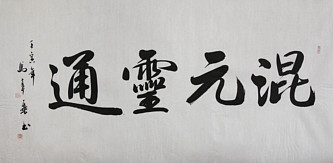 混元靈通
壬寅年